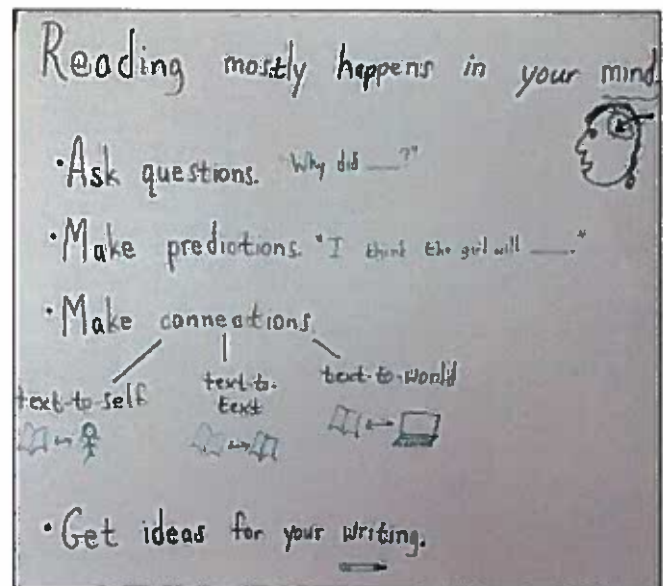 Reading mostly happens in your mind.
• Ask questions. Why did ___?"
• Make predictions. "I think the girl will ___."
• Make connections
text-to-self
text-to-
text
text-to-world
• Get ideas for your writing.